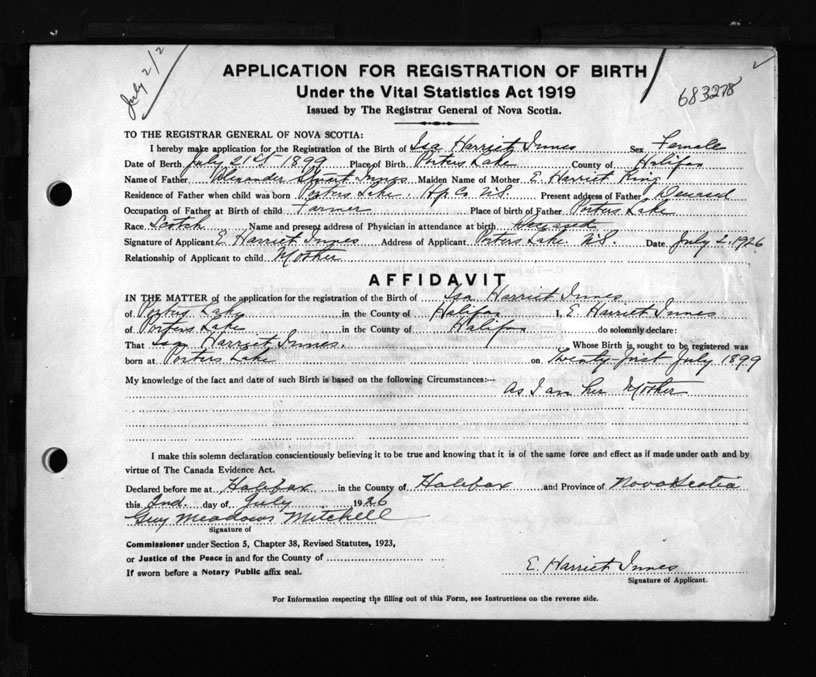 July 2/2
683278
APPLICATION FOR REGISTRATION OF BIRTH
Under the Vital Statistics Act 1919
Issued by The Registrar General of Nova Scotia.
TO THE REGISTRAR GENERAL OF NOVA SCOTIA:
I hereby make application for the Registration of the Birth of Isa Harriet Innes Sex Female
Date of Birth July 21st 1899 Place of Birth Porters Lake County of Halifax
Name of Father Alexander Stuart Innes Maiden Name of Mother E. Harriet King
Residence of Father when child was born Porters Lake Hfx Co N.S. Present address of Father Deceased
Occupation of Father at Birth of child Farmer Place of birth of Father Porters Lake
Race Scotch Name and present address of Physician in attendance at birth Deceased
Signature of Applicant E Harriet Innes Address of Applicant Porters Lake N.S. Date July 2. 1926
Relationship of Applicant to child Mother
AFFIDAVIT
IN THE MATTER of the application for the registration of the Birth of Isa Harriet Innes
of Porters Lake in the County of Halifax I, E. Harriet Innes
of Porters Lake in the County of Halifax do solemnly declare:
That Isa Harriet Innes. Whose Birth is sought to be registered was
born at Porters Lake on Twenty first July 1899
My knowledge of the fact and date of such Birth is based on the following Circumstances:—
As I am her Mother
I make this solemn declaration conscientiously believing it to be true and knowing that it is of the same force and effect as if made under oath and by
virtue of The Canada Evidence Act.
Declared before me at Halifax in the County of Halifax and Province of Nova Scotia
this 2nd. day of July 1926
Guy Meadows Mitchell
Signature of
Commissioner under Section 5, Chapter 38, Revised Statutes, 1923,
or Justice of the Peace in and for the County of
If sworn before a Notary Public affix seal.
E. Harriet Innes
Signature of Applicant.
For Information respecting the filling out of this Form, see Instructions on the reverse side.